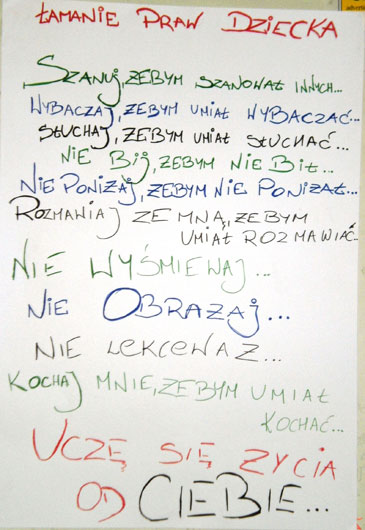 ŁAMANIE PRAW DZIECKA
SZANUJ, ŻEBYM SZANOWAŁ INNYCH...
WYBACZAJ, ŻEBYM UMIAŁ WYBACZAĆ...
SŁUCHAJ, ŻEBYM UMIAŁ SŁUCHAĆ...
NIE BIJ, ŻEBYM NIE BIŁ...
NIE PONIŻAJ, ŻEBYM NIE PONIŻAŁ...
ROZMAWIAJ ZE MNĄ, ŻEBYM
UMIAŁ ROZMAWIAĆ...
NIE WYŚMIEWAJ...
NIE OBRAŻAJ...
NIE LEKCEWAŻ...
KOCHAJ MNIE, ŻEBYM UMIAŁ
KOCHAĆ...
UCZĘ SIĘ ŻYCIA
OD CIEBIE...